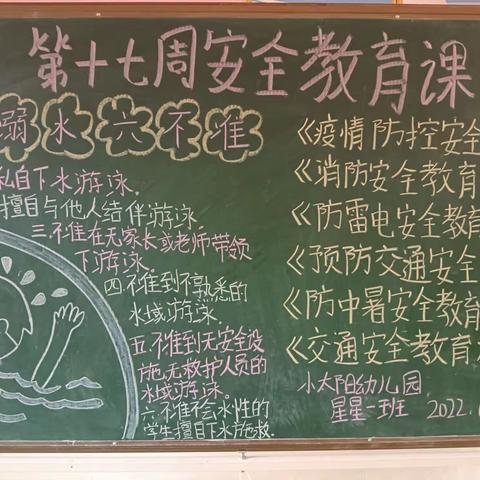 第十七周安全教育课
溺水六不准
私自下水游泳.
擅自与他人结伴游泳.
三.不准在无家长或老师带领
下游泳
四.不准到不熟悉的
水域游泳.
五.不准到无安全设
施,无救护人员的
水域游泳。
六.不准不会水性的
学生擅自下水施救.
《疫情防控安全
《消防安全教育
《防雷电安全教育
《预防交通安全
《防中暑安全教育
《交通安全教育
小太阳幼儿园
星星一班 2022.